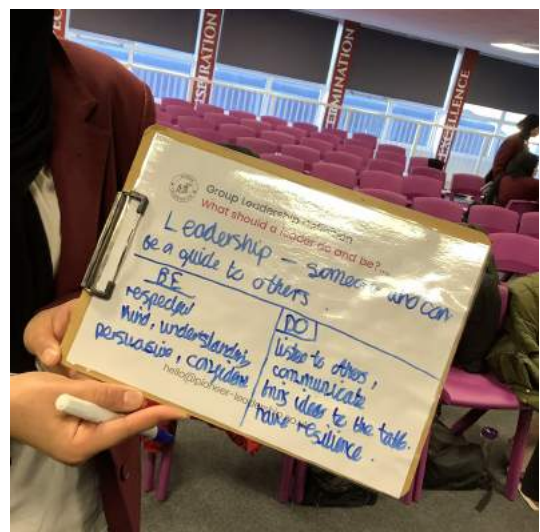 INSPIRATION
DETERMINATION
EXCELLENCE
Group Leadership Definition
What should a leader do and be?...
Leadership – someone who can
be a guide to others.
BE
respectful
kind, understanding,
persuasive, confident
DO
listen to others,
communicate
bring ideas to the table.
have resilience.
hello@pioneer-leadership.co